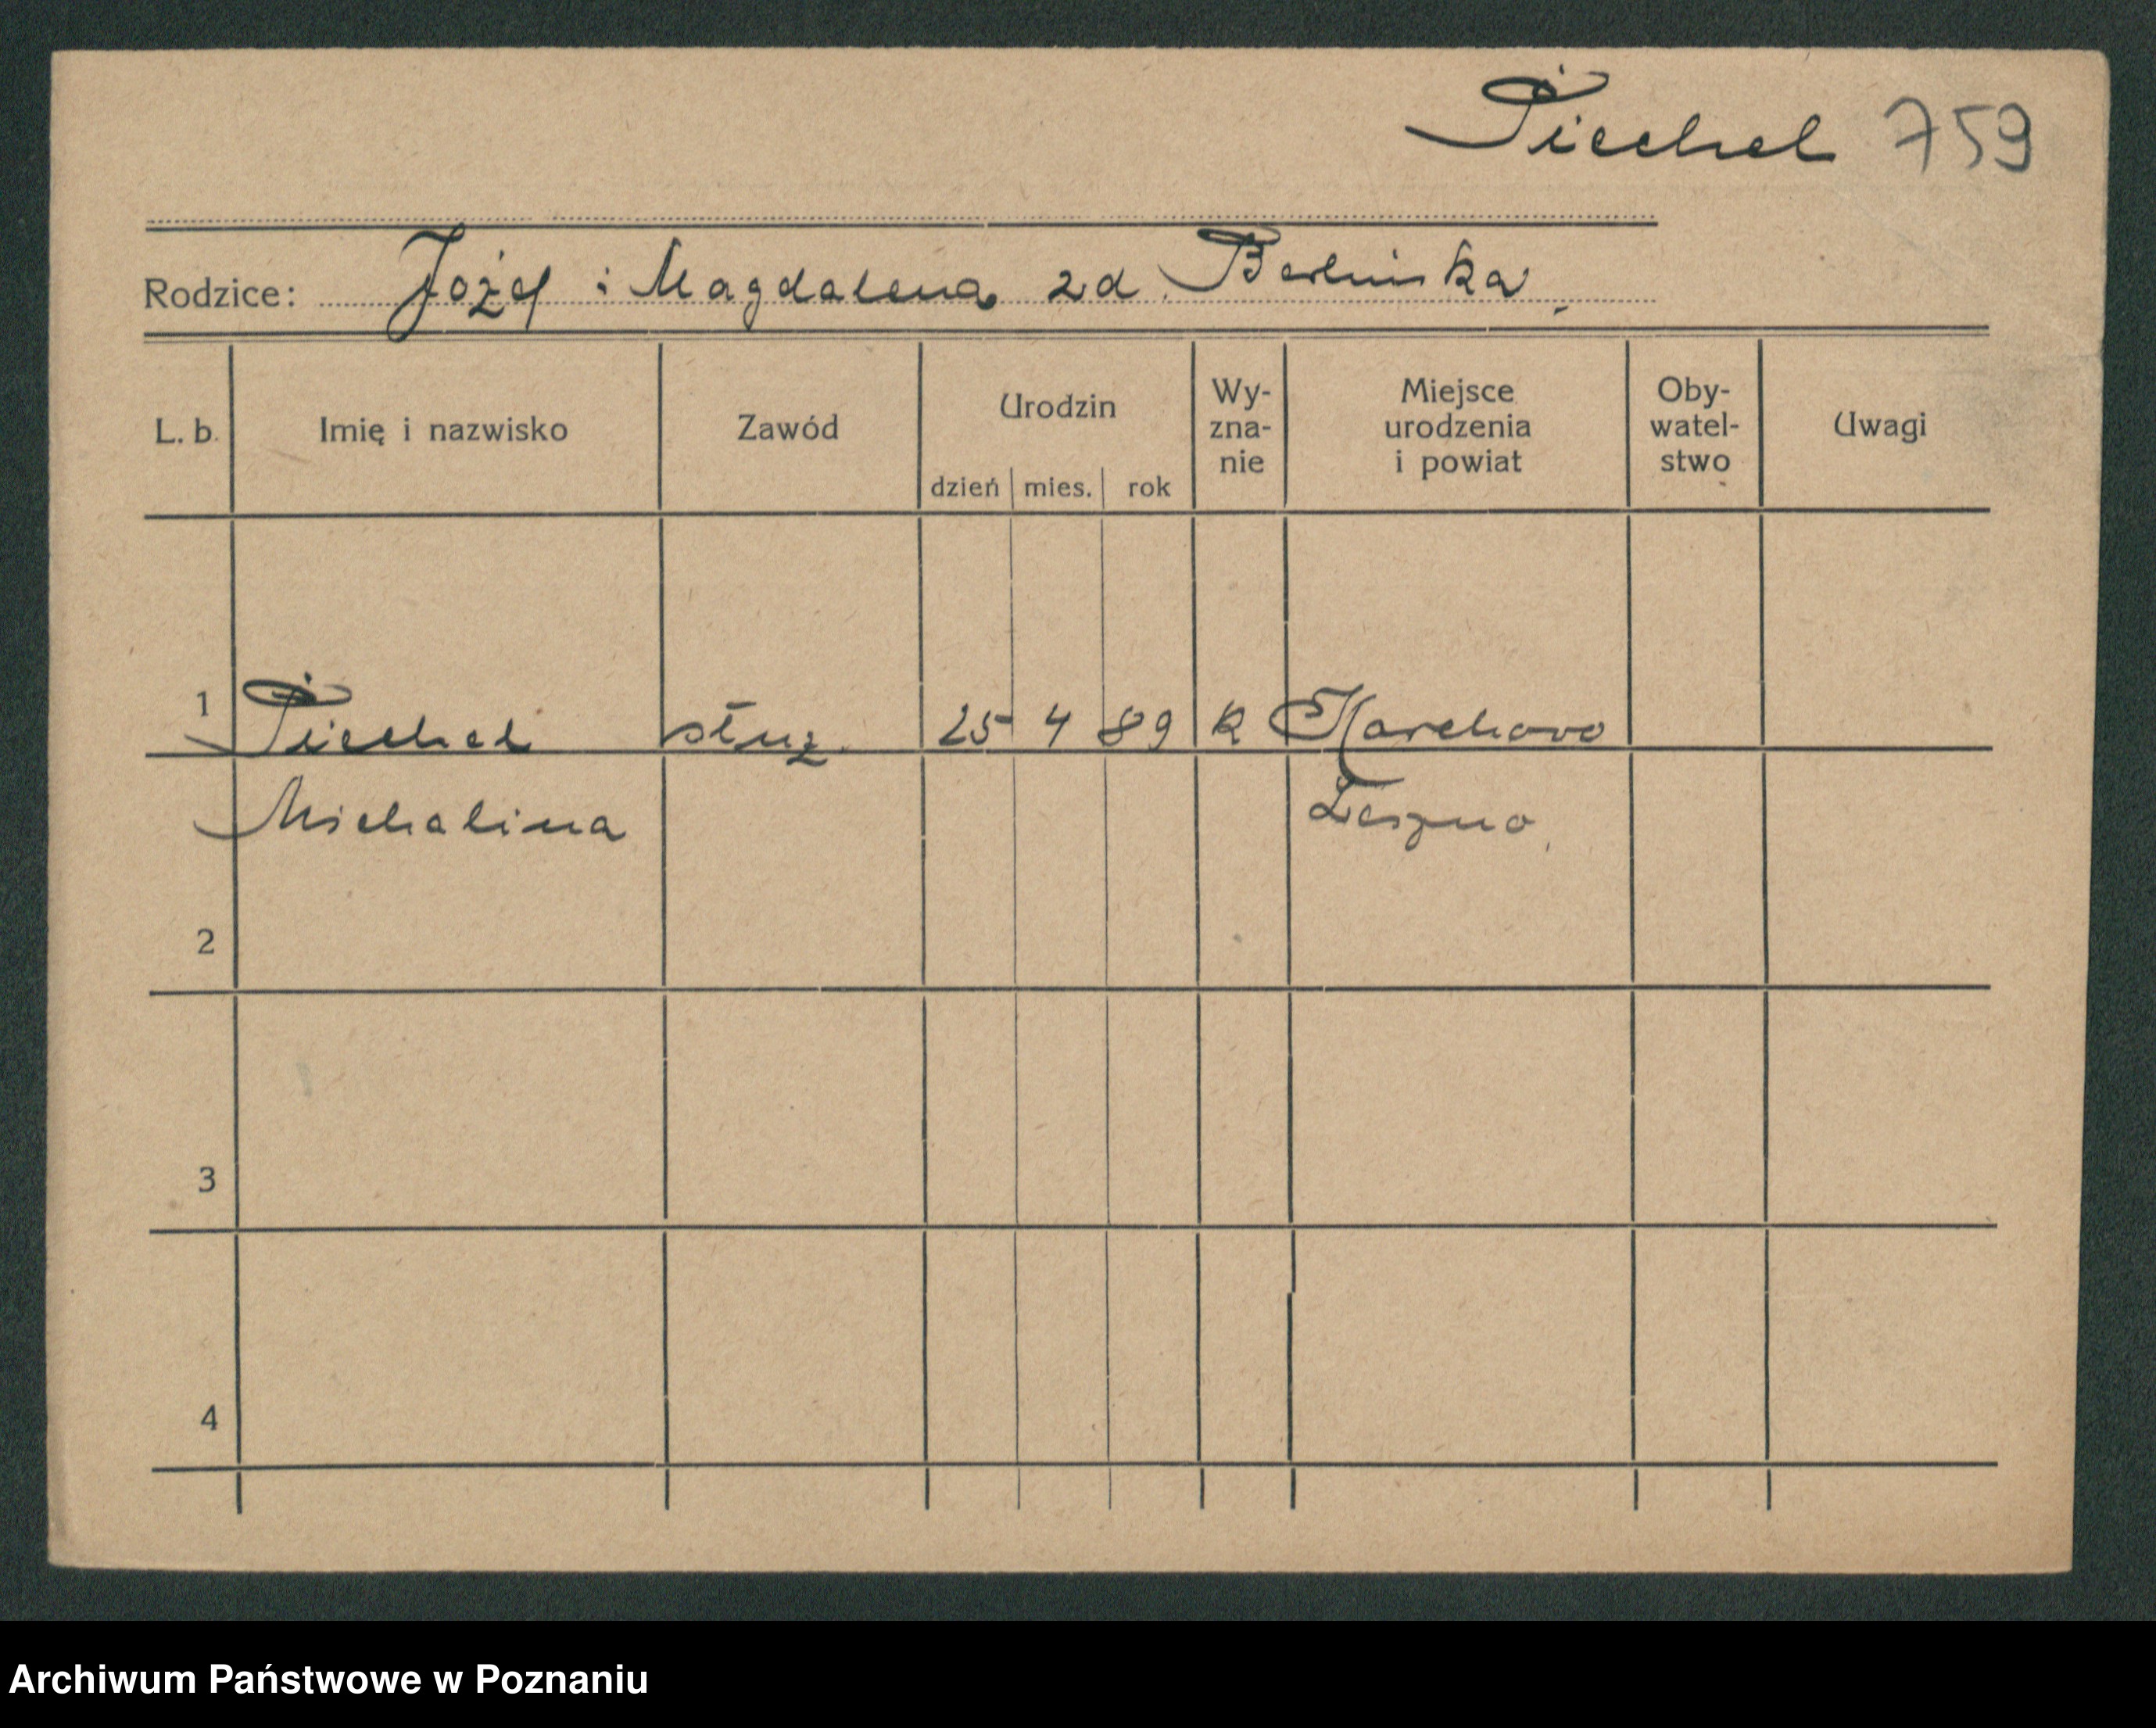 Piechel 759
Rodzice: Józef i Magdalena zd. Berlinska.
L. b. Imię i nazwisko Zawód Urodzin dzień mies. rok Wy-zna-nie Miejsce urodzenia i powiat Oby-watel-stwo Uwagi
1 Piechel służ. 25 4 89 k Karchowo
Michalina Leszno,
2
3
4
Archiwum Państwowe w Poznaniu